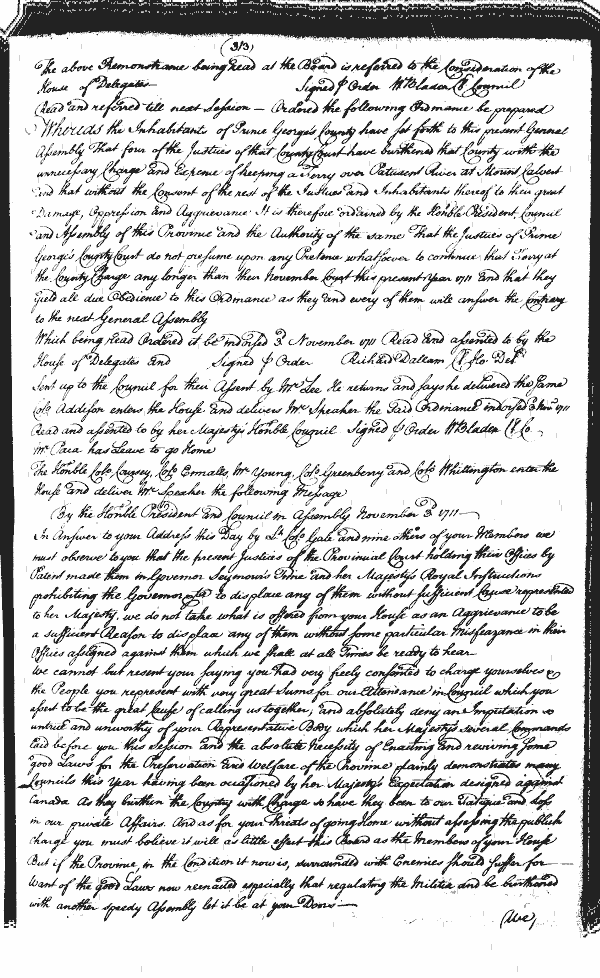 (313)
The above Remonstrance being read at the Board is referred to the Consideration of the
House of Delegates Signed p Order W Bladen Cl Council
Read and referred till next Session — Ordered the following Ordinance be prepared
Whereas the Inhabitants of Prince George's County have set forth to this present General
Assembly That four of the Justices of that County Court have burthened that County with the
unnecessary Charge and Expence of keeping a Ferry over Patuxent River at Mount Calvert
and that without the Consent of the rest of the Justices and Inhabitants thereof to their great
Damage, Oppression and Aggrievance It is therefore ordained by the Honble President, Council
and Assembly of this Province and the Authority of the same That the Justices of Prince
George's County Court do not presume upon any Pretence whatsoever to continue that Ferry at
the County Charge any longer than their November Court this present Year 1711 and that they
yield all due Obedience to this Ordinance as they and every of them will answer the Contrary
to the next General Assembly
Which being read Ordered it be indorsed 3 November 1711 Read and assented to by the
House of Delegates and Signed p Order Richard Dallam Cl Ho. Del
Sent up to the Council for their Assent by Mr Lee He returns and says he delivered the same
Colo Addison enters the House and delivers Mr Speaker the said Ordinance indorsed 3 Novr 1711
Read and assented to by her Majesty's Honble Council Signed p Order W Bladen Cl Co
Mr Paca has Leave to go Home
The Honble Colo Coursey, Colo Ennalls, Mr Young, Colo Greenberry and Colo Whittington enter the
House and deliver Mr Speaker the following Message
By the Honble President and Council in Assembly November 3 1711—
In Answer to your Address this Day by Lt Colo Gale and nine others of your Members we
must observe to you that the present Justices of the Provincial Court holding their Offices by
Patent made them in Governor Seymour's Time and her Majesty's Royal Instructions
prohibiting the Governor to displace any of them without sufficient Cause represented
to her Majesty, we do not take what is offered from your House as an Aggrievance to be
a sufficient Reason to displace any of them without some particular Misfeazance in their
Offices assigned against them which we shall at all Times be ready to hear
We cannot but resent your saying you had very freely consented to charge yourselves &
the People you represent with very great Sums for our Attendance in Council which you
assert to be the great Cause of calling us together, and absolutely deny an Imputation so
untrue and unworthy of your Representative Body which her Majesty's several Commands
laid before you this Session and the absolute necessity of Enacting and reviving some
good Laws for the Preservation and Welfare of the Province plainly demonstrates many
Councils this Year having been occasioned by her Majesty's Expectation designed against
Canada As they burthen the Country with Charge so have they been to our Fatigue and loss
in our private Affairs. And as for your Threats of going Home without assessing the publick
charge you must believe it will as little affect this Board as the Members of your House
But if the Province in the Condition it now is, surrounded with Enemies should suffer for
Want of the good Laws now reenacted especially that regulating the Militia and be burthened
with another speedy Assembly let it be at your Doors—
(We)